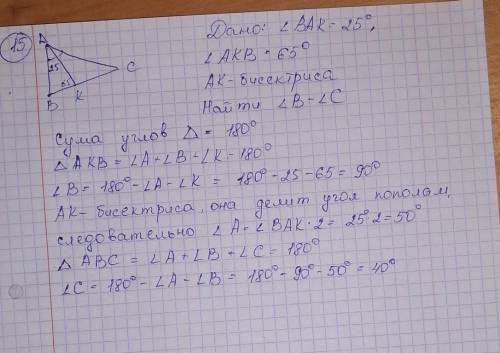 15
A
25
65
B
K
C
Дано: ∠BAK = 25°,
∠AKB = 65°
AK - бисектриса
Найти ∠B - ∠C
Сума углов Δ = 180°
Δ AKB = ∠A + ∠B + ∠K = 180°
∠B = 180° - ∠A - ∠K = 180° - 25 - 65 = 90°
AK - бисектриса, она делит угол пополам,
следовательно ∠A = ∠BAK · 2 = 25° · 2 = 50°
Δ ABC = ∠A + ∠B + ∠C = 180°
∠C = 180° - ∠A - ∠B = 180° - 90° - 50° = 40°